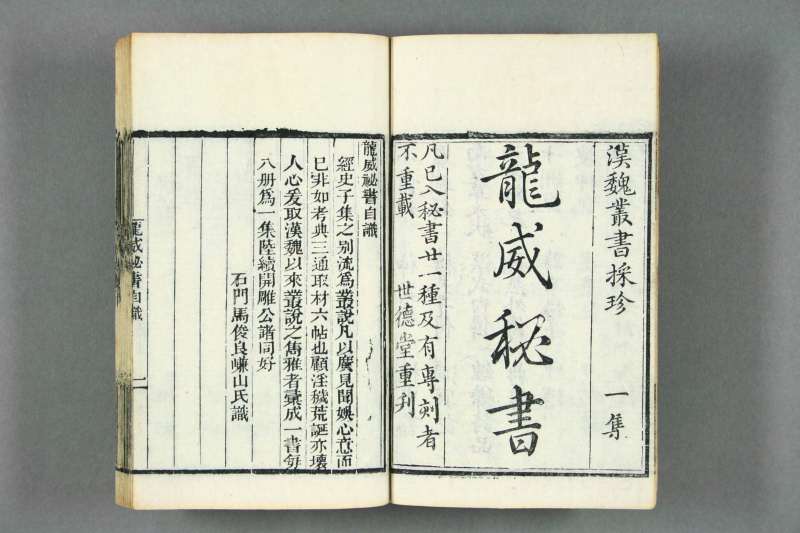 漢魏叢書採珍 一集
龍威秘書
凡已入秘書廿一種及有專刻者
不重載 世德堂重刋
龍威祕書自識
經史子集之别流爲叢說凡以廣見聞娛心意而
已非如考典三通取材六帖也顧淫穢荒誕亦壞
人心爰取漢魏以來叢說之雋雅者彙成一書每
八册爲一集陸續開雕公諸同好
石門馬俊良嵰山氏識
龍威祕書自識 二